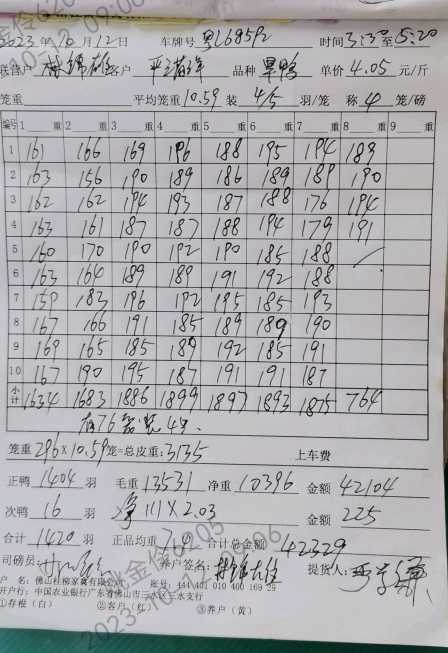 2023年10月12日 车牌号 粤L685P2 时间3:30至5:20
客户 品种 单价4.05元/斤
笼重 平均笼重10.59装4/5羽/笼 称4笼/磅
编号 1 重 2 重 3 重 4 重 5 重 6 重 7 重 8 重 9 重
1 161 166 169 196 188 195 194 189
2 163 156 190 189 186 189 189 190
3 162 162 194 193 187 188 176 194
4 163 161 187 187 188 194 179 191
5 160 170 190 192 190 185 188
6 163 164 189 189 191 192 188
7 159 183 196 192 195 185 193
8 167 166 191 185 189 189 190
9 169 165 185 189 192 185 191
10 167 190 195 187 191 191 187
小计 1634 1683 1886 1899 1897 1893 1875 764
有76笼装4只
笼重296×10.59笼=总皮重:3135 上车费
正鸭1404羽 毛重13531 净重10396 金额42104
次鸭16羽 净111×2.03 金额225
合计1420羽 正品均重7.4 合计总金额42329
司磅员: 养户签名: 提货人:
户 名:佛山桂柳家禽有限公司 账号:444 401 010 400 169 29
开户行:中国农业银行广东省佛山市三水区三水支行
①存根(白) ②客户(红) ③养户(黄)